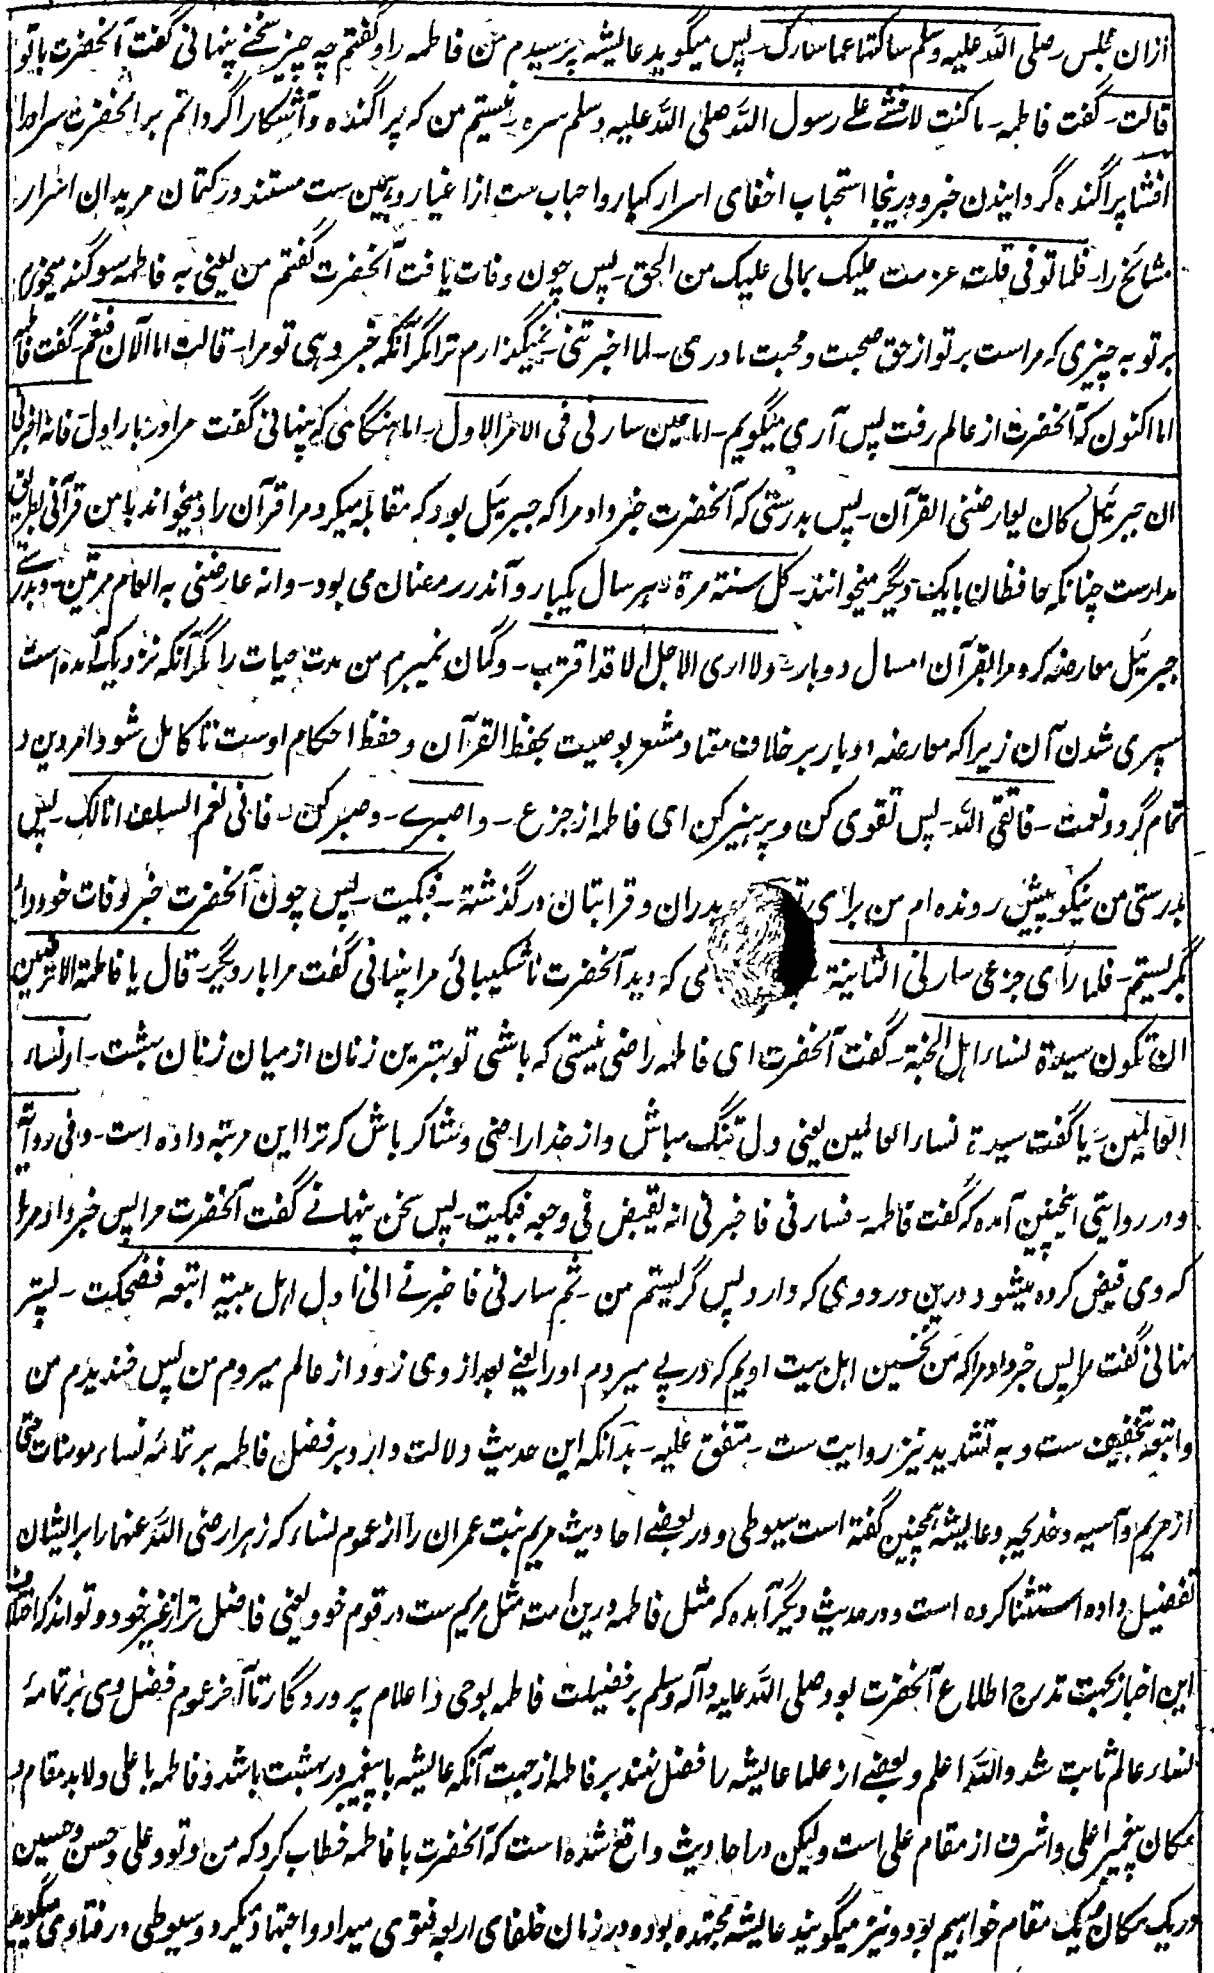 ازان مجلس رصلی اللّه علیه وسلم سالتها عما سارک - پس میگوید عایشه پرسیدم من فاطمه را و گفتم چه چیز سخنے پنهانی گفت آنحضرت با تو
قالت - گفت فاطمه - ماکنت لافشے علے رسول اللّه صلی اللّه علیه وسلم سره - نیستم من که پراگنده و آشکارا گردانم بر آنحضرت سر او را
افشا پراگنده گردانیدن خبر و درینجا استحباب اخفای اسرار کبار و احباب ست از اغیار و همین ست مستند در کتمان مریدان اسرار
مشائخ را - فلما توفی قلت عزمت علیک بمالی علیک من الحق - پس چون وفات یافت آنحضرت گفتم من یعنی به فاطمه سوگند میخورم
بر تو به چیزی که مراست بر تو از حق صحبت و محبت مادری - لما اخبرتنی - نمیگذارم ترا مگر آنکه خبر دهی تو مرا - قالت اما الآن فنعم - گفت فاطمه
اما اکنون که آنحضرت از عالم رفت پس آری میگویم - اما حین سارنی فی الامر الاول - اما هنگامی که پنهانی گفت مرا در بار اول فانه اخبرنی
ان جبرئیل کان یعارضنی القرآن - پس بدرستی که آنحضرت خبر داد مرا که جبرئیل بود که مقابله میکرد مرا قرآن را و میخواند با من قرآنی بطریق
مدارست چنانکه حافظان با یکدیگر میخوانند - کل سنته مرة - هر سال یکبار و آن در رمضان می بود - وانه عارضنی به العام مرتین - و بدرستے
جبرئیل معارضه کرد مرا بقرآن امسال دو بار - ولا اری الاجل الا قد اقترب - و گمان نمیبرم من مدت حیات را مگر آنکه نزدیک آمده است
سپری شدن آن زیرا که معارضه دو بار بر خلاف معتاد مشعر بوصیت بحفظ القرآن و حفظ احکام اوست تا کامل شود امر دین و
تمام گردد نعمت - فاتقی اللّه - پس تقوی کن و پرهیز کن ای فاطمه از جزع - واصبرے - و صبر کن - فانی نعم السلف انا لک - پس
بدرستی من نیکو پیش رونده ام من برای پدران و قرابتان در گذشته - فبکیت - پس چون آنحضرت خبر وفات خود داد
بگریستم - فلما رأی جزعی سارنی الثانیة که دید آنحضرت ناشکیبائی مرا پنهانی گفت مرا بار دیگر - قال یا فاطمة الا ترضین
ان تکون سیدة نساء اهل الجنة - گفت آنحضرت ای فاطمه راضی نیستی که باشی تو بهترین زنان از میان زنان بهشت - او نساء
العالمین - یا گفت سیدة نساء العالمین یعنی دل تنگ مباش و از خدا راضی و شاکر باش که ترا این مرتبه داده است - وفی روایة
و در روایتی اینچنین آمده که گفت فاطمه - فسارنی فاخبرنی انه یقبض فی وجعه فبکیت - پس سخن پنهانے گفت آنحضرت مرا پس خبر داد مرا
که وی قبض کرده میشود درین دردوی که دارد پس گریستم من - ثم سارنی فاخبرنے انی اول اهل بیته اتبعه فضحکت - پستر
پنهانی گفت مرا پس خبر داد مرا که من نخستین اهل بیت اویم که در پے میروم او را یعنے بعد از وی زود از عالم میروم من پس خندیدم من
واتبعه بتخفیف ست و به تشدید نیز روایت ست - متفق علیه - بدانکه این حدیث دلالت دارد بر فضل فاطمه بر تمامه نساء مومنات حتی
از مریم و آسیه و خدیجه و عایشه همچنین گفته است سیوطی و در بعضے احادیث مریم بنت عمران را از عموم نساء که زهرا رضی اللّه عنها را بر ایشان
تفضیل داده استثنا کرده است و در حدیث دیگر آمده که مثل فاطمه درین امت مثل مریم ست در قوم خود یعنی فاضل تر از غیر خود و تواند که اختلاف
این اخبار بجهت تدرج اطلاع آنحضرت بود صلی اللّه علیه وآله وسلم بر فضیلت فاطمه بوحی و اعلام پروردگار تا آخر عموم فضل وی بر تمامهٔ
نساء عالم ثابت شد واللّه اعلم و بعضے از علما عایشه را فضل نهند بر فاطمه از جهت آنکه عایشه با پیغمبر در بهشت باشد و فاطمه با علی و لابد مقام و
مکان پیغمبر اعلی و اشرف از مقام علی است ولیکن در احادیث واقع شده است که آنحضرت با فاطمه خطاب کرد که من و تو و علی و حسن و حسین
در یک مکان و یک مقام خواهیم بود و نیز میگویند عایشه مجتهده بود و در زمان خلفای اربعه فتوی میداد و اجتهاد میکرد و سیوطی در فتاوی میگوید